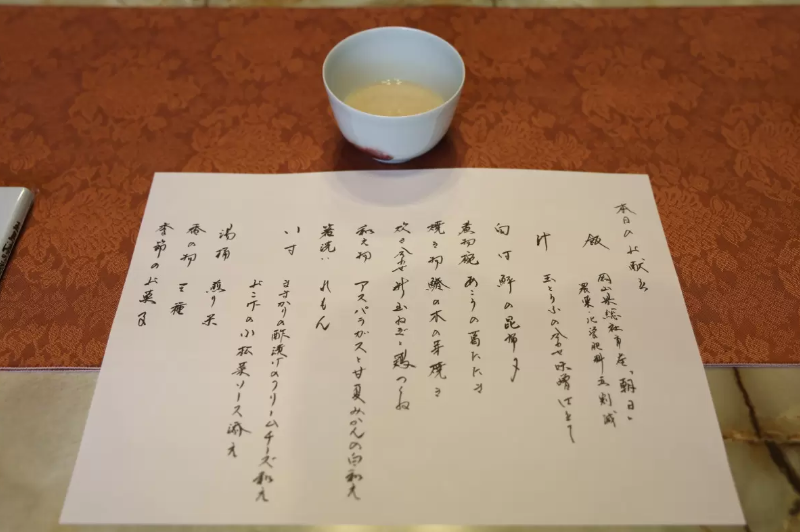 本日の献立
飯 岡山県総社市産、朝日、
農薬化学肥料五割減
汁 玉とうふの合せ味噌仕立て
向付 鮃の昆布〆
煮物碗 あこうの葛たたき
焼き物 鰆の木の芽焼き
炊き合せ 新玉ねぎと鶏つくね
和え物 アスパラガスと甘夏みかんの白和え
箸洗い れもん
八寸 きさかりの酢漬けのクリームチーズ和え
よこわの小松菜ソース添え
湯桶 煎り米
香の物 三種
季節のお菓子